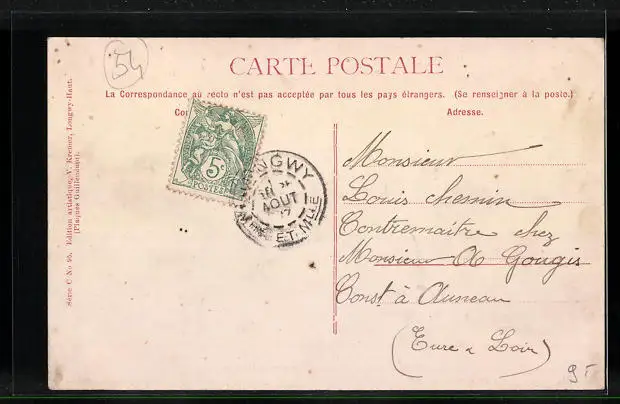 54
CARTE POSTALE
La Correspondance au recto n'est pas acceptée par tous les pays étrangers. (Se renseigner à la poste.)
Co
Adresse.
5c
POSTES
LONGWY
AOUT
ET-MLLE
Monsieur
Louis chemin
Contremaitre chez
Monsieur A Gougis
Const à Auneau
(Eure & Loir)
Série C No 90. Edition artistique, V. Kremer, Longwy-Haut.
(Plaques Guilleminot).